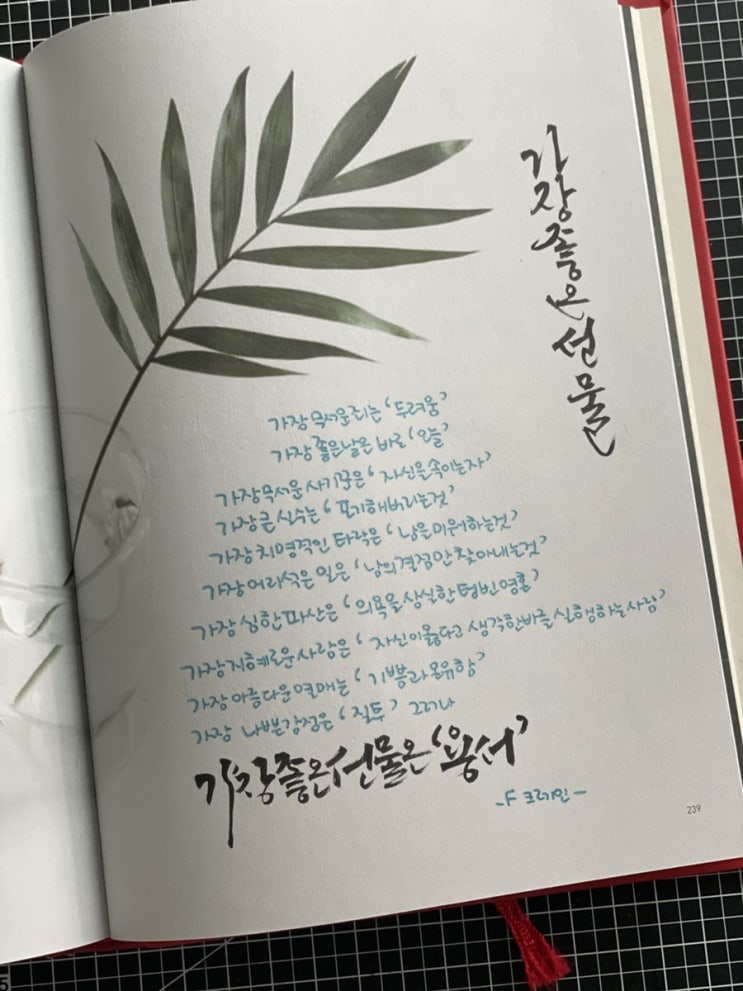 가장 좋은 선물
가장 무서운 죄는 '두려움'
가장 좋은 날은 바로 '오늘'
가장 무서운 사기꾼은 '자신을 속이는 자'
가장 큰 실수는 '포기해 버리는 것'
가장 치명적인 타락은 '남을 미워하는 것'
가장 어리석은 일은 '남의 결점만 찾아내는 것'
가장 심한 파산은 '의욕을 상실한 텅 빈 영혼'
가장 지혜로운 사람은 '자신이 옳다고 생각한 바를 실행하는 사람'
가장 아름다운 열매는 '기쁨과 온유함'
가장 나쁜 감정은 '질투' 그러나
가장 좋은 선물은 '용서'
-F 크레인-
239